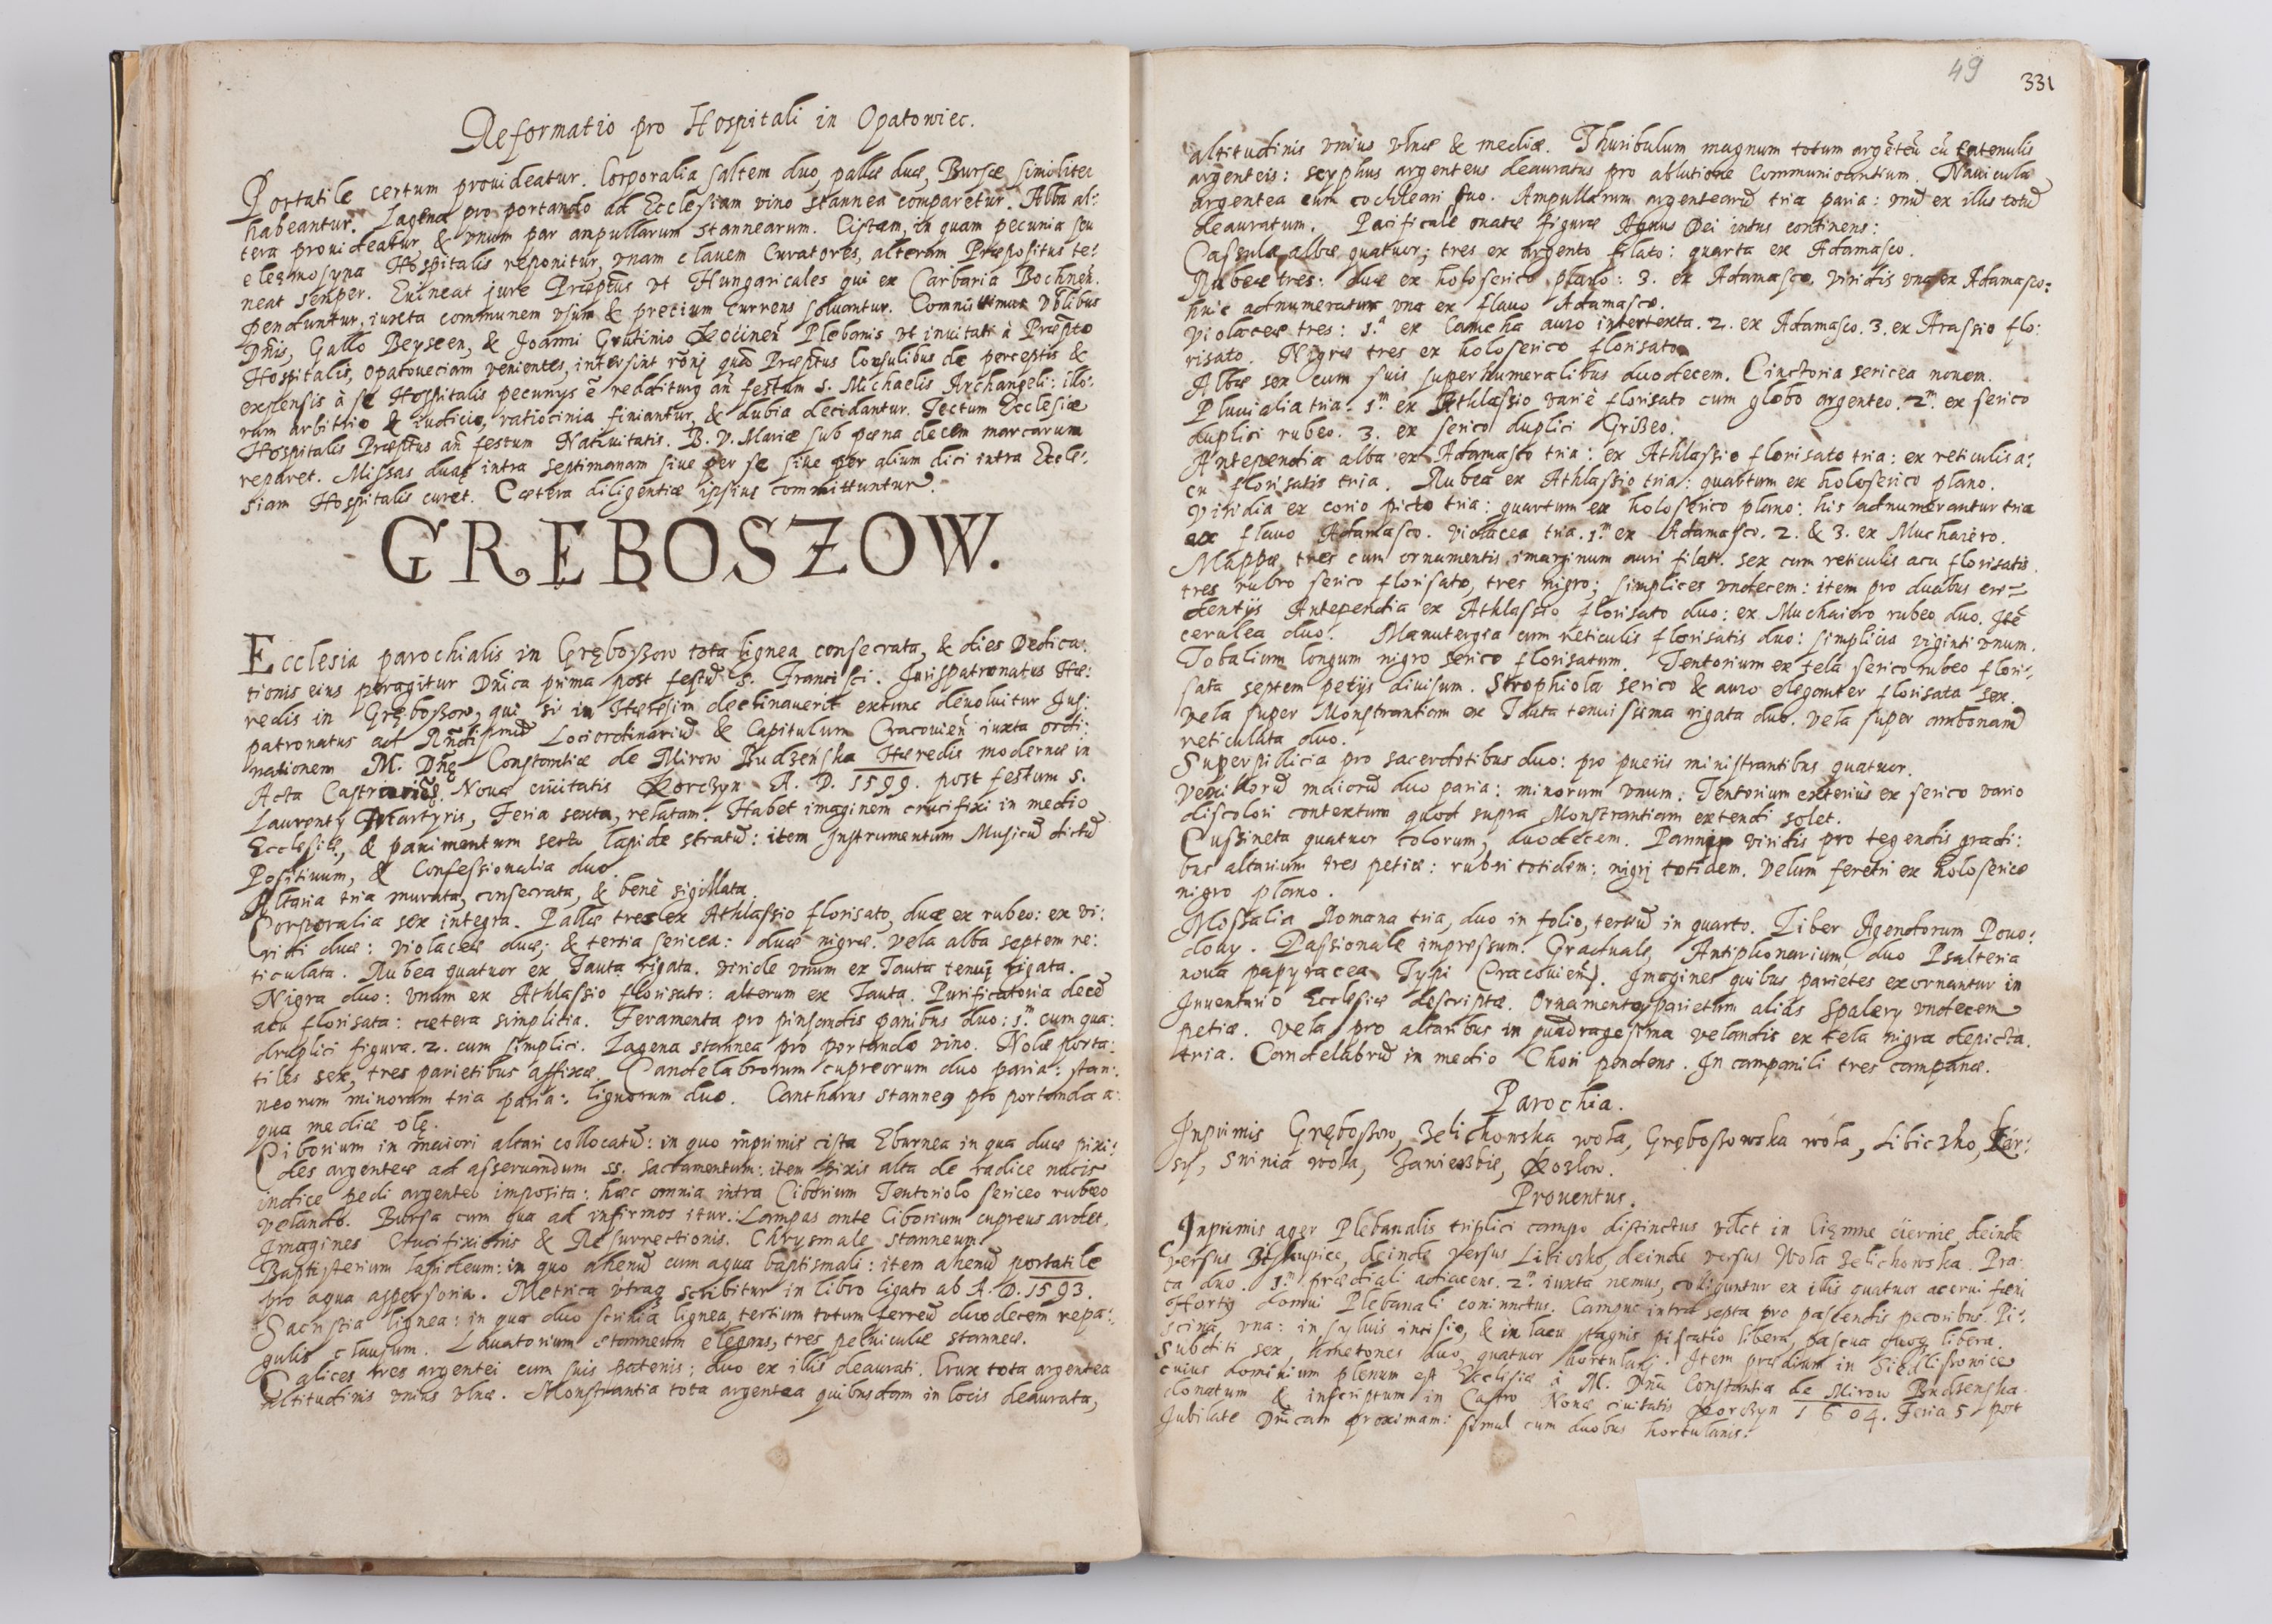 Reformatio pro Hospitali in Opatowiec.
Portatile certum prouideatur. Corporalia saltem duo, pallæ duæ, Bursæ similiter
habeantur. Lagena pro portando ad Ecclesiam vino stannea comparetur. Alba al:
tera prouideatur, & vnum par ampullarum stannearum. Cistam, in quam pecunia seu
elęmosyna Hospitalis reponitur, vnam clauem Curatores, alteram Præpositus te:
neat semper. Euineat jure Præptus vt Hungaricales qui ex Carbaria Bochneñ.
penduntur, iuxta communem vsum & pretium currens soluantur. Committimus Vblibus
Dñis, Gallo Beyseen, & Joanni Grutinio Plebanis vt inuitati à Præpto
Hospitalis, Opatoueciam venientes, intersint rõnj quã Præptus Consulibus de perceptis &
expensis à se Hospitalis pecunys redditurq añ festum S. Michaelis Archangeli: illo:
rum arbitrio & iudicio, ratiocinia finiantur, & dubia decidantur. Tectum Ecclesiæ
Hospitalis Præptus añ festum Natiuitatis. B. V. Mariæ sub pæna decem marcarum
reparet. Missas duas intra septimanam siue per se siue per alium dici intra Eccle:
siam Hospitalis curet. Cætera diligentiæ ipsius committuntur.
GRĘBOSZOW.
Ecclesia parochialis in Gręboßow tota lignea consecrata, & dies Dedica:
tionis eius peragitur Dñica prima post festũ S. Francisci. Jurispatronatus Hæ:
redis in Gręboßow, qui si in Hæresim declinauerit extunc deuoluitur Jus:
patronatus ad Rñdissimũ Lociordinariũ & Capitulum Cracouieñ iuxta ordi:
nationem M. Dñę Constantiæ de Mirow Budzeńska Hæredis modernæ in
Acta Castrensia Nouæ ciuitatis Korczyn A. D. 1599. post festum S.
Laurenty Martyris, Feria sexta, relatam. Habet imaginem crucifixi in medio
Ecclesiæ, & pauimentum secto lapide stratũ: item Instrumentum Musicũ dictũ
Positiuum, & Confessionalia duo.
Altaria tria murata, consecrata, & benè sigillata.
Corporalia sex integra. Pallæ tres ex Athlassio florisato, duæ ex rubeo: ex vi:
ridi duæ: violaceæ duæ; & tertia sericea: duæ nigræ. Vela alba septem re:
ticulata. Rubea quatuor ex Tauta rigata. viride vnum ex Tauta tenuij rigata.
Nigra duo: vnum ex Athlassio florisato: alterum ex Tauta. Purificatoria decẽ
acu florisata: cætera simplicia. Feramenta pro pinsandis panibus duo: 1.m cum qua:
druplici figura. 2. cum simplici. Lagena stannea pro portando vino. Nolæ porta:
tiles sex, tres parietibus affixæ. Candelabrorum cupreorum duo paria: stan:
neorum minorum tria paria: lignorum duo. Cantharus stanneg pro portanda a:
qua mediæ olę.
Ciborium in maiori altari collocatũ: in quo inprimis cista Eburnea in qua duæ pixi:
des argenteæ ad asseruandum SS. Sacramentum: item pixis alta de radice nucis
indicæ pedi argenteo imposita: hæc omnia intra Ciborium Tentoriolo sericeo rubeo
velando. Bursa cum qua ad infirmos itur. Lampas ante Ciborium cupreus ardet.
Imagines Crucifixionis & Resurrectionis. Chrysmale stanneum.
Baptisterium lapideum: in quo ahenũ cum aqua baptismali: item ahenũ portatile
pro aqua aspersoria. Metrica vtraq scribitur in libro ligato ab A. D. 1593.
Sacristia lignea: in qua duo scrinia lignea, tertium totum ferreũ duodecem repa:
gulis clausum. Lauatorium stanneum elegans, tres peluiculæ stanneæ.
Calices tres argentei cum suis patenis: duo ex illis deaurati. Crux tota argentea
altitudinis vnius vlnæ. Monstrantia tota argentea quibusdam in locis deaurata,
49
331
altitudinis vnius vlnæ & mediæ. Thuribulum magnum totum argẽteũ cũ catenulis
argenteis: scyphus argenteus deauratus pro ablutione Communicantium. Nauicula
argentea cum cochleari suo. Ampullarum argentearũ tria paria: vnũ ex illis totũ
deauratum. Pacificale ouatæ figuræ Agnus Dei intus continens:
Casulæ albæ quatuor; tres ex argento filato: quarta ex Adamasco.
Rubeæ tres: duæ ex holoserico plano: 3. ex Adamasco. Viridis vna ex Adamasco:
huic adnumeratur vna ex flauo Adamasco.
Violaceæ tres: 1.a ex Camcha auro intertexta. 2. ex Adamasco. 3. ex Arassio flo:
risato. Nigræ tres ex holoserico florisato.
Albæ sex cum suis superhumeralibus duodecem. Cinctoria sericea nouem.
Pluuialia tria: 1.m ex Athlassio variè florisato cum globo argenteo. 2.m ex serico
duplici rubeo. 3. ex serico duplici Grißeo.
Antependia alba ex Adamasco tria: ex Athlassio florisato tria: ex reticulis a:
cu florisatis tria. Rubea ex Athlassio tria: quartum ex holoserico plano.
Viridia ex corio picto tria: quartum ex holoserico plano: his adnumerantur tria
ex flauo Adamasco. Violacea tria. 1.m ex Adamasco. 2. & 3. ex Muchaiero.
Mappæ, tres cum ornamentis imarginum auri filati. sex cum reticulis acu florisatis.
tres rubro serico florisatæ, tres nigro; simplices vndecem: item pro duabus cre:
dentijs Antependia ex Athlassio florisato duo: ex Muchaiero rubeo duo. Itẽ
cerulea duo. Manutergia cum reticulis florisatis duo: simplicia viginti vnum.
Tobalium longum nigro serico florisatum. Tentorium ex tela serico rubeo flori:
sata septem petijs diuisum. Strophiola serico & auro eleganter florisata sex.
Vela super Monstrantiam ex Tauta tenuissima rigata duo. Vela super ambonam
reticulata duo.
Superpilicia pro sacerdotibus duo: pro pueris ministrantibus quatuor.
Vexillorũ maiorũ duo paria: minorum vnum. Tentorium exterius ex serico vario
discolori contextum quod supra Monstrantiam extendi solet.
Cussineta quatuor colorum, duodecem. Panni viridis pro tegendis gradi:
bus altarium tres petiæ: rubri totidem: nigrj totidem. Velum feretri ex holoserico
nigro plano.
Missalia Romana tria, duo in folio, tertiũ in quarto. Liber Agendorum Pouo:
douy. Passionale impressum. Graduale, Antiphonarium, duo Psalteria
noua papyracea Typi Cracouieñ. Imagines quibus parietes exornantur in
Inuentario Ecclesiæ descriptæ. Ornamenta parietum aliàs Spalery vndecem
petiæ. Vela pro altaribus in quadragesima velandis ex tela nigra depicta
tria. Candelabrũ in medio Chori pendens. In campanili tres campanæ.
Parochia.
Inprimis Gręboßow, Zelichowska wola, Gręboßowska wola, Libiczko, Kár:
sy, Sninia wola, Kozlow.
Prouentus.
Inprimis ager Plebanalis triplici campo distinctus vdlct in deinde
versus deinde versus Libiczko, deinde versus Wola Zelichowska. Pra:
ta duo. 1.m prædiali adiacens. 2.m iuxta nemus, colliguntur ex illis quatuor acerui fæni
Hortg domui Plebanali coniunctus. Campus intra septa pro pascendis pecoribus. Pi:
scina vna: in syluis incisio, & in lacu stagnis piscatio libera, pascua quoq libera.
Subditi sex, kmetones duo, quatuor hortulani. Item prædium in
cuius dominium plenum est Ecclesiæ à M. Dña Constantia de Mirow Budzenska
donatum & inscriptum in Castro Nouæ ciuitatis Korczyn 1604. Feria 5 post
Jubilate Dñicam proximam: simul cum duobus hortulanis.